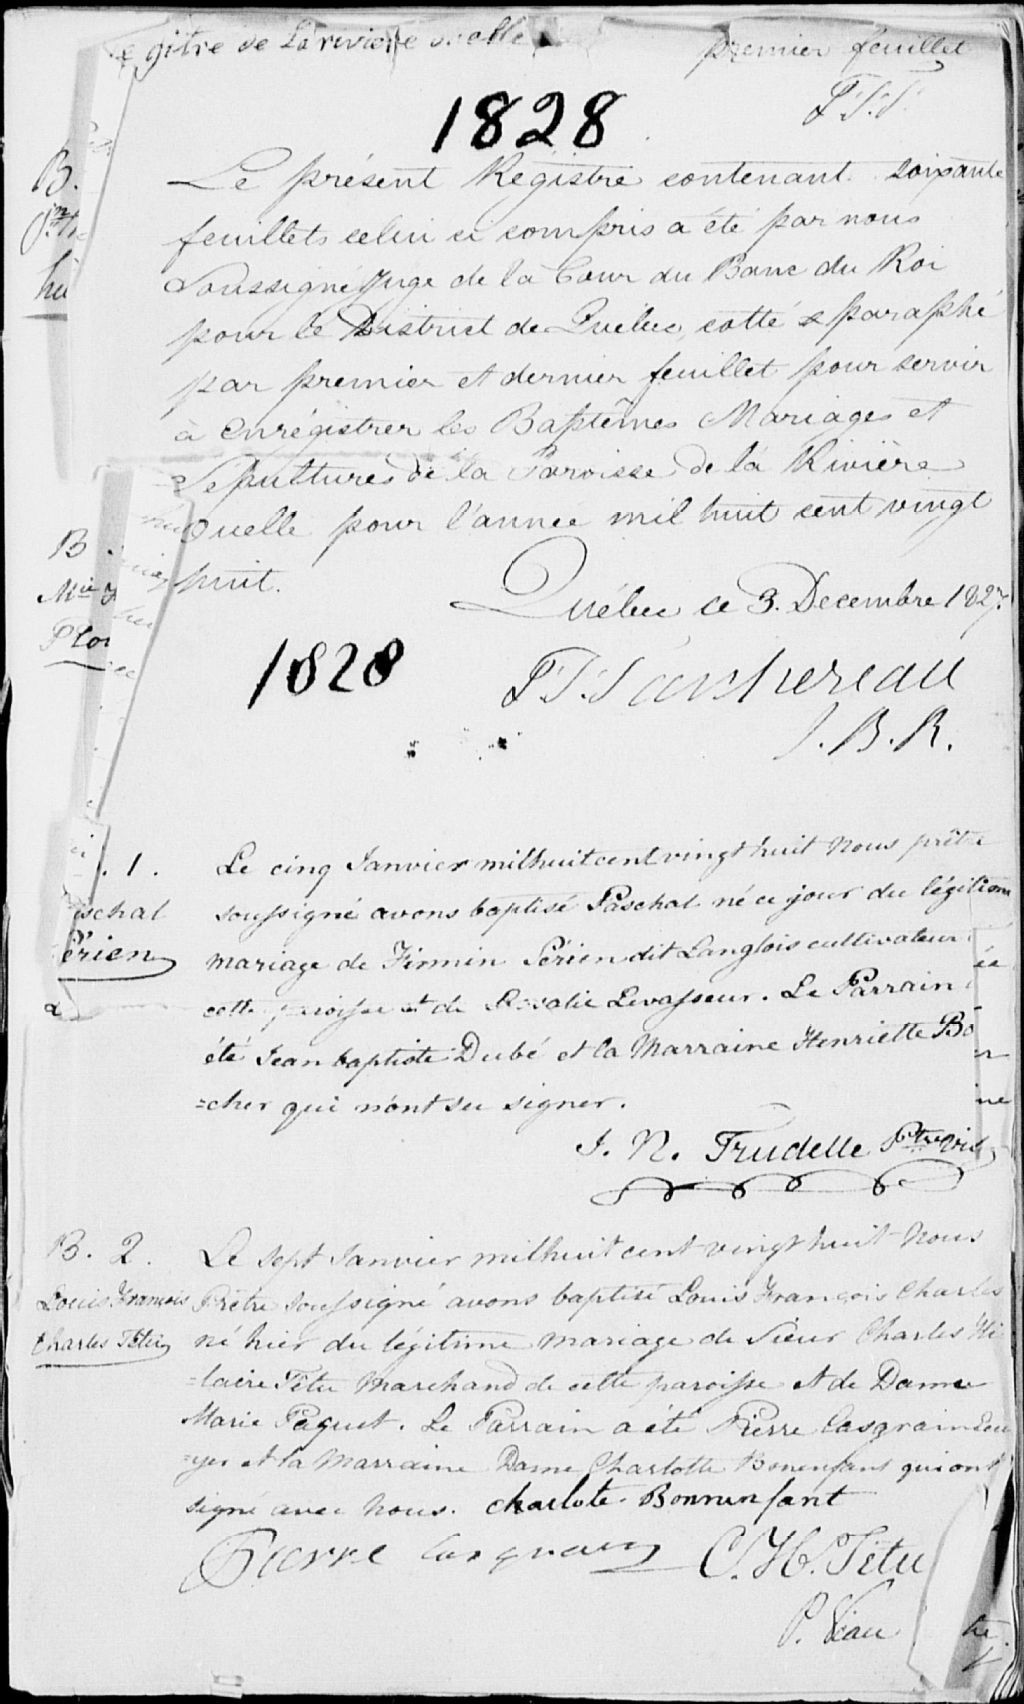 gitre de La riviere ouelle
premier feuillet
T.T.
1828
Le présent Régistre contenant soixante
feuillets celui ci compris a été par nous
Soussigné Juge de la Cour du Banc du Roi
pour le District de Québec, cotté & paraphé
par premier et dernier feuillet pour servir
à enrégistrer les Baptêmes Mariages et
Sepultures de la Paroisse de la Rivière
Ouelle pour l'année mil huit cent vingt
huit.
Québec ce 3. Decembre 1827.
1828
T. Taschereau
J.B.R.
. 1.
schal
Périen
Le cinq Janvier mil huit cent vingt huit Nous prêtre
soussigné avons baptisé Paschal né ce jour du légitime
mariage de Firmin Périen dit Langlois cultivateur
cette paroisse et de Rosalie Levasseur. Le Parrain
été Jean baptiste Dubé et la Marraine Henriette Bo
=cher qui n'ont su signer.
J. N. Trudelle Ptre vic
B. 2.
Louis François
Charles Têtu
Le sept Janvier mil huit cent vingt huit Nous
Prêtre soussigné avons baptisé Louis François Charles
né hier du légitime mariage de Sieur Charles Hi
=laire Têtu Marchand de cette paroisse et de Dame
Marie Paquet. Le Parrain a été Pierre Casgrain Ecu
=yer et la Marraine Dame Charlotte Bonenfant qui ont
signé avec Nous. charlote Bonnenfant
Pierre Casgrain C. H. Têtu
P. Viau
B.
hu
B.
Mie